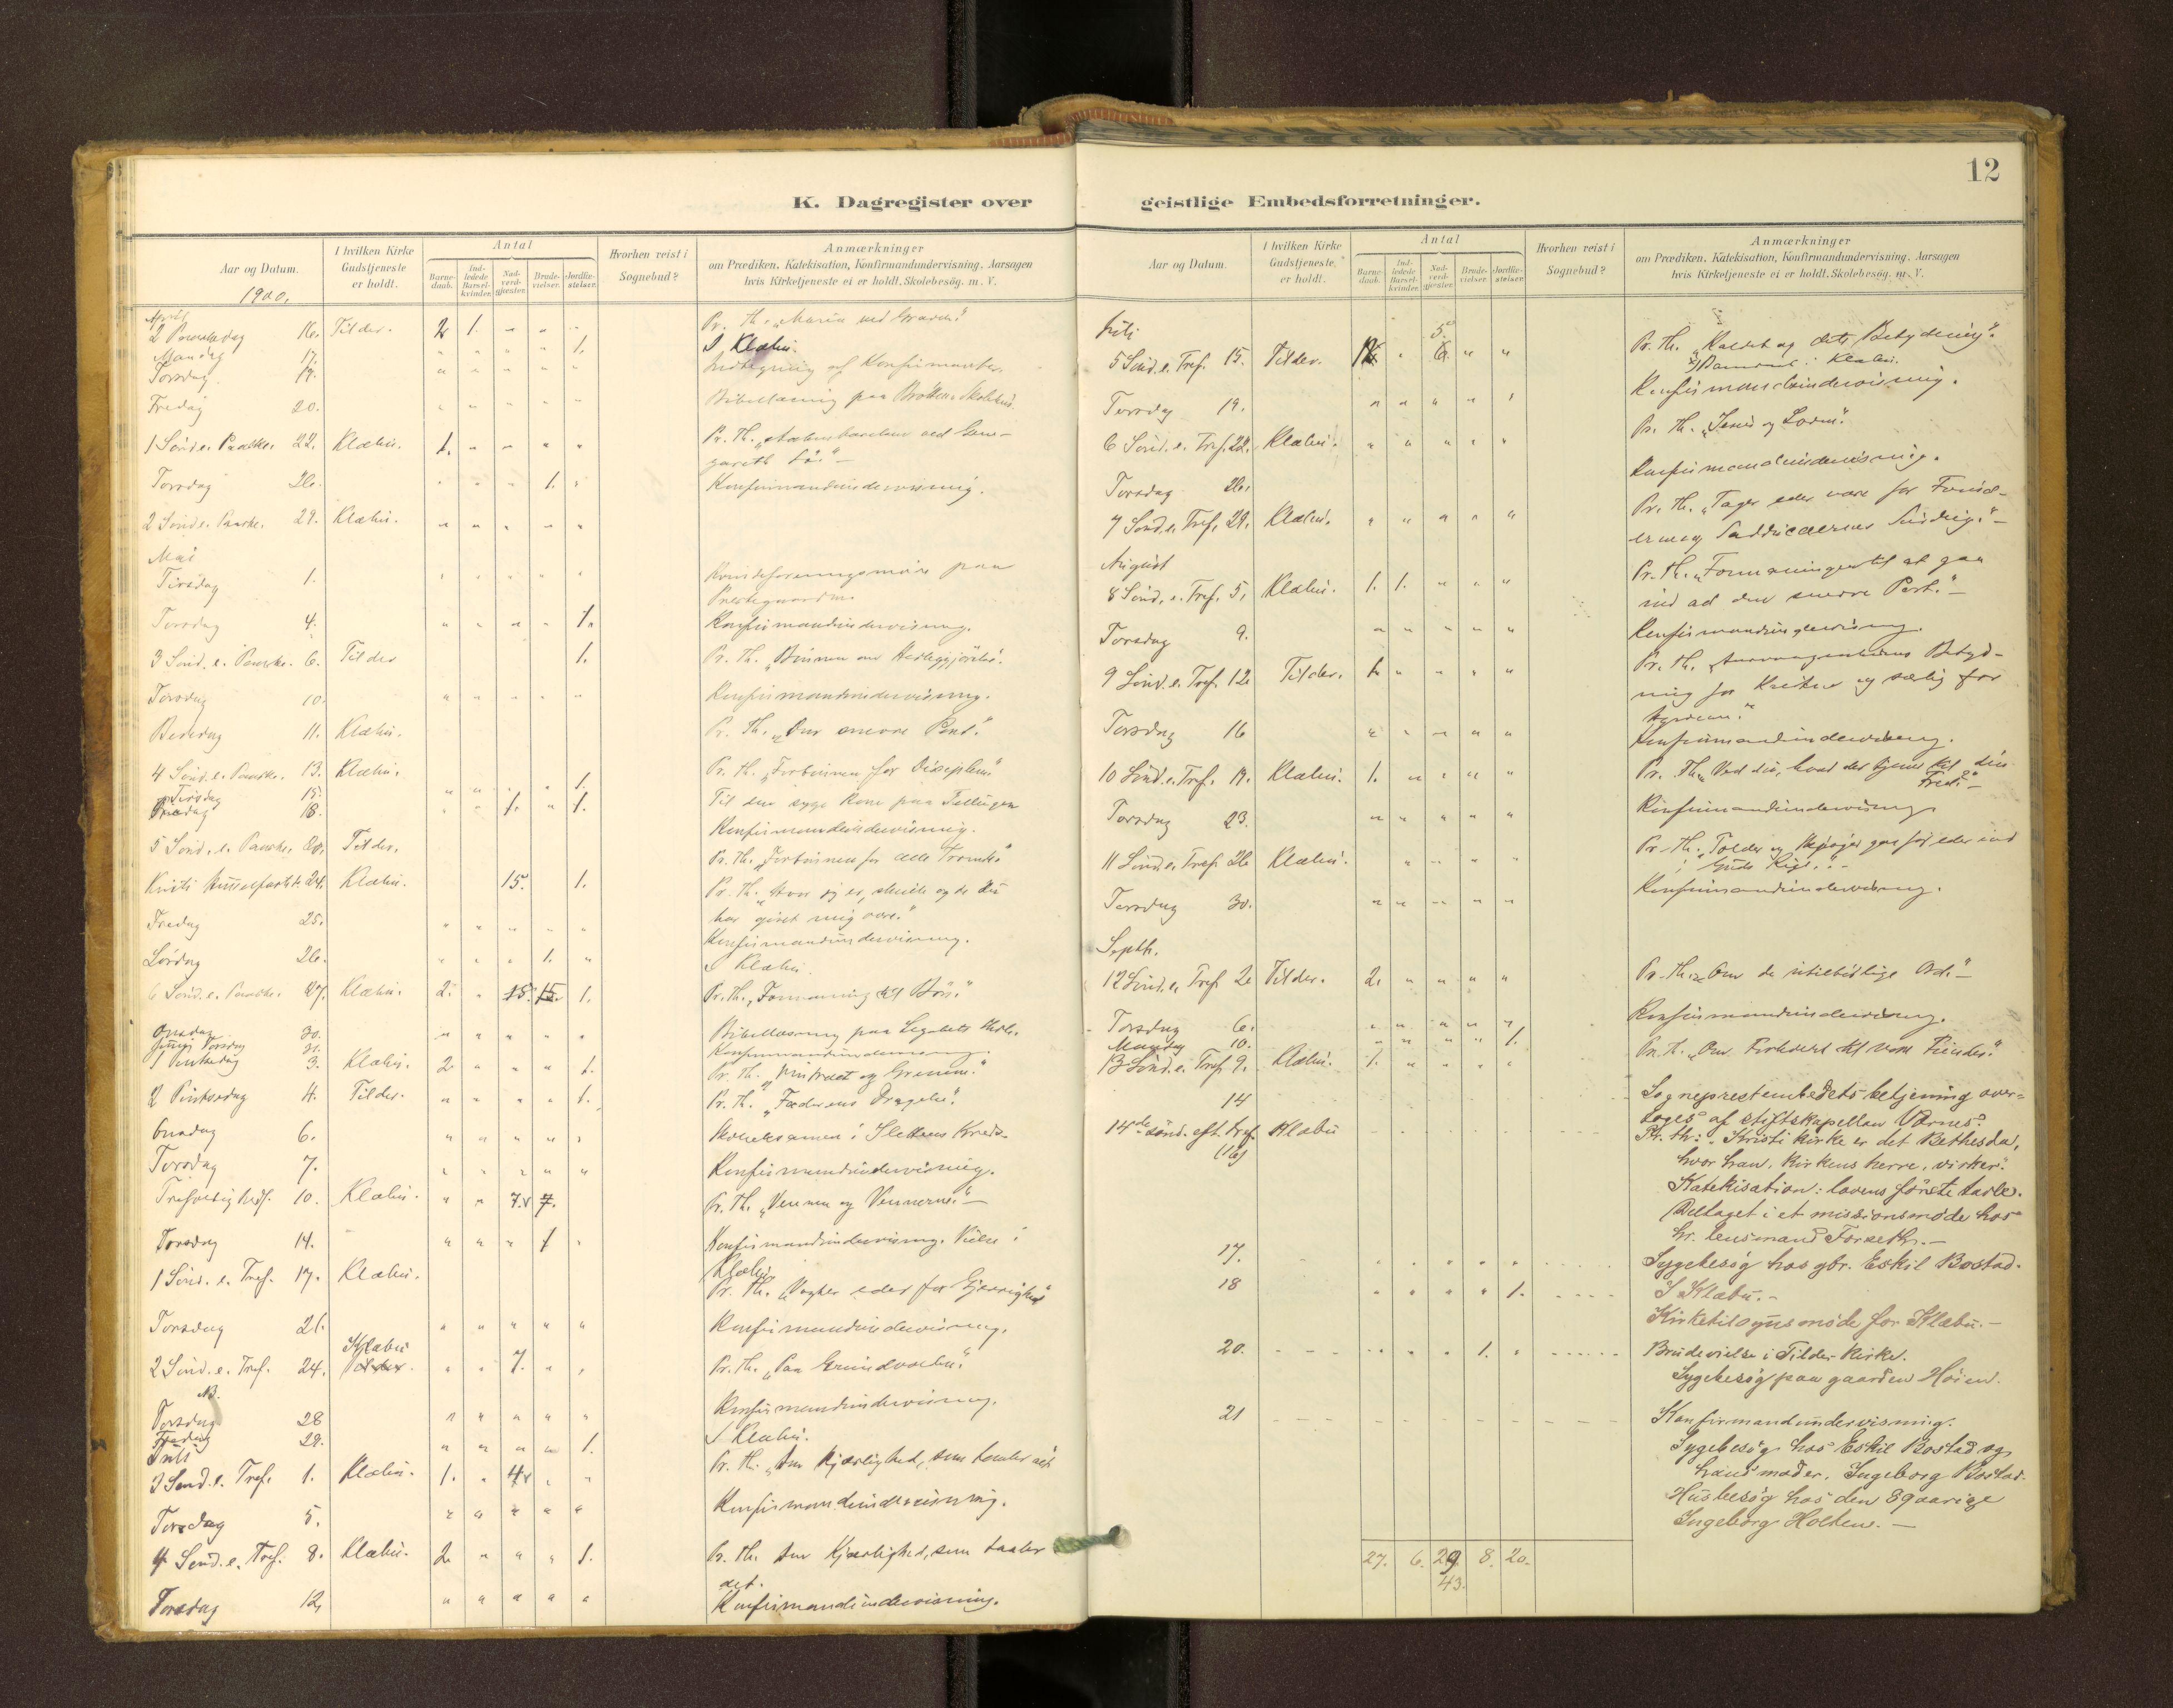 12
K. Dagregister over geistlige Embedsforretninger.
Aar og Datum.
I hvilken Kirke Gudstjeneste er holdt.
Antal
Barne-daab.
Ind-ledede Barsel-kvinder.
Nad-verd-gjæster.
Brude-vielser.
Jordfæ-stelser.
Hvorhen reist i Sognebud?
Anmærkninger
om Prædiken, Katekisation, Konfirmandundervisning, Aarsagen
hvis Kirketjeneste ei er holdt, Skolebesög. m. V.
1900.
April
2 Paaskedag 16. Tilder. 2 1. " " " Pr. Th. "Maria ved Graven."
Mandag 17. " " " " 1. I Klæbu.
Torsdag 19. " " " " " Indtegning af Konfirmanter.
Fredag 20. " " " " " Bibellæsning paa Skolehus.
1 Sönd. e. Paaske. 22. Klæbu. 1. " " " " Pr. Th. ved Gene-
zareth Sö."
Torsdag 26. " " " 1. " Konfirmandundervisning.
2 Sönd e. Paaske. 29. Klæbu. " " " " "
Mai
Tirsdag 1. " " " " " Kvindeforeningsmöde paa
Prestegaarden.
Torsdag 4. " " " " 1. Konfirmandundervisning.
3 Sönd. e. Paaske. 6. Tilder 1. Pr. Th. "Bönnen om Helliggjörelse."
Torsdag 10. " " " " " Konfirmandundervisning.
Bededag 11. Klæbu. Pr. Th. "Den snevre Port."
4 Sönd. e. Paaske. 13. Klæbu. Pr. Th. "Forbönnen for Disciplene"
Tirsdag 15. " " " " 1.
18. " " 1. " 1. Til den syge Kone paa Tullingen
Konfirmandundervisning.
5 Sönd. e. Paaske. 20. Tilder. Pr. Th. "Forbönnen for alle Troende."
Kristi Himmelfartsd. 24. Klæbu. 15. 1. Pr. Th. "Hvor jeg er, skulle ogsaa de du
har givet mig være."
Fredag 25. " " " " " Konfirmandundervisning.
Lördag 26. " " " 1. " I Klæbu.
6 Sönd. e. Paaske. 27. Klæbu. 2. " 15. 15. 1. Pr. Th. "Formaning til Bön."
Onsdag 30. " " " " " Bibellæsning paa
Juni Torsdag 31. Konfirmandundervisning.
1 Pintsedag 3. Klæbu. 2 " " " 1. Pr. Th. "Vintræet og Grenene."
2 Pintsedag 4. Tilder. " " " " 1. Pr. Th. "Faderens Dragelse."
Onsdag 6. " " " " " Skoleeksamen i Slettens Kreds.
Torsdag 7. " " " " " Konfirmandundervisning.
Trefoldighedsf. 10. Klæbu. " " 7. 7. Pr. Th. "Vennen og Vennerne."
Torsdag 14. " " " 1 " Konfirmandundervisning. Vielse i
Klæbu
1 Sönd. e. Tref. 17. Klæbu. Pr. Th. "Vogter eder for Gjerrighed"
Torsdag 21. " " " " " Konfirmandundervisning.
2 Sönd. e. Tref. 24. Klæbu Tilder. " " 7. " " Pr. Th. "Paa Grundvolden."
NB.
Torsdag 28 " " " " " Konfirmandundervisning.
Fredag 29. " " " " 1. I Klæbu.
Juli
3 Sönd. e. Tref. 1. Klæbu. 1. " 4 " " Pr. Th. "Den Kjærlighed, som
Torsdag 5. " " " " " Konfirmandundervisning.
4 Sönd. e. Tref. 8. Klæbu. 2 " " " 1. Pr. Th. Den Kjærlighed, som taaler
det.
Torsdag 12. " " " " " Konfirmandundervisning.
Juli
5 Sönd. e. Tref. 15. Tilder. " 5 6. " " Pr. Th. "Kaldet og dets Betydning."
i Klæbu.
Torsdag 19. " " " " " Konfirmandundervisning.
6 Sönd. e. Tref. 22. Klæbu. " " " " " Pr. Th. "Jesus og Loven."
Torsdag 26. Konfirmandundervisning.
7 Sönd. e. Tref. 29. Klæbu. " " " " " Pr. Th. "Tager eder vare for Farisæ-
erne og Sadducæernes Surdeig."
August
8 Sönd. e. Tref. 5. Klæbu. 1. 1. " " " Pr. Th. "Formaningen til at gaa
ind ad den snevre Port."
Torsdag 9. " " " " " Konfirmandundervisning.
9 Sönd. e. Tref. 12 Tilder. 1. " " " " Pr. Th. Betyd-
ning for Kirken og særlig for
Torsdag 16 " " " " " Konfirmandundervisning.
10 Sönd. e. Tref. 19. Klæbu. 1. " " " " Pr. Th. "Ved du, hvad der tjener til din
Fred."
Torsdag 23. " " " " " Konfirmandundervisning
11 Sönd. e. Tref. 26 Klæbu. " " " " Pr. Th. "Tolder og Skjöger gaa for eder ind
i Guds Rige."
Torsdag 30. " " " " " Konfirmandundervisning.
Septb.
12 Sönd. e. Tref. 2 Tilder. 2. " " " " Pr. Th. "Om de utilbörlige Ord."
Torsdag 6. " " " " " Konfirmandundervisning.
Mandag 10. " " " " 1.
13 Sönd. e. Tref. 9. Klæbu. 1. " " " " Pr. Th. "Om Forholdet til vore Fiender."
14 Sogneprestembedets betjening over-
toges af stiftskapellan Værnes.
14de sönd. eft. tref. (16) Klæbu Pr. Th.: "Kristi kirke er det Bethesda,
hvor han, kirkens herre, virker."
Katekisation: lovens förste tavle.
Deltaget i et missionsmöde hos
hr. lensmand Forseth.
17. Sygebesög hos gbr. Eskil Bostad.
18 " " " " 1. I Klæbu.
Kirketilsynsmöde for Klæbu.
20. 1. Brudevielse i Tilder kirke.
Sygebesög paa gaarden Höien.
21 Konfirmandundervisning.
Sygebesög hos Eskil Bostad og
hans moder, Ingeborg Bostad.
Husbesög hos den 89aarige
Ingeborg Holten.
27. 6. 29 8. 20.
43.